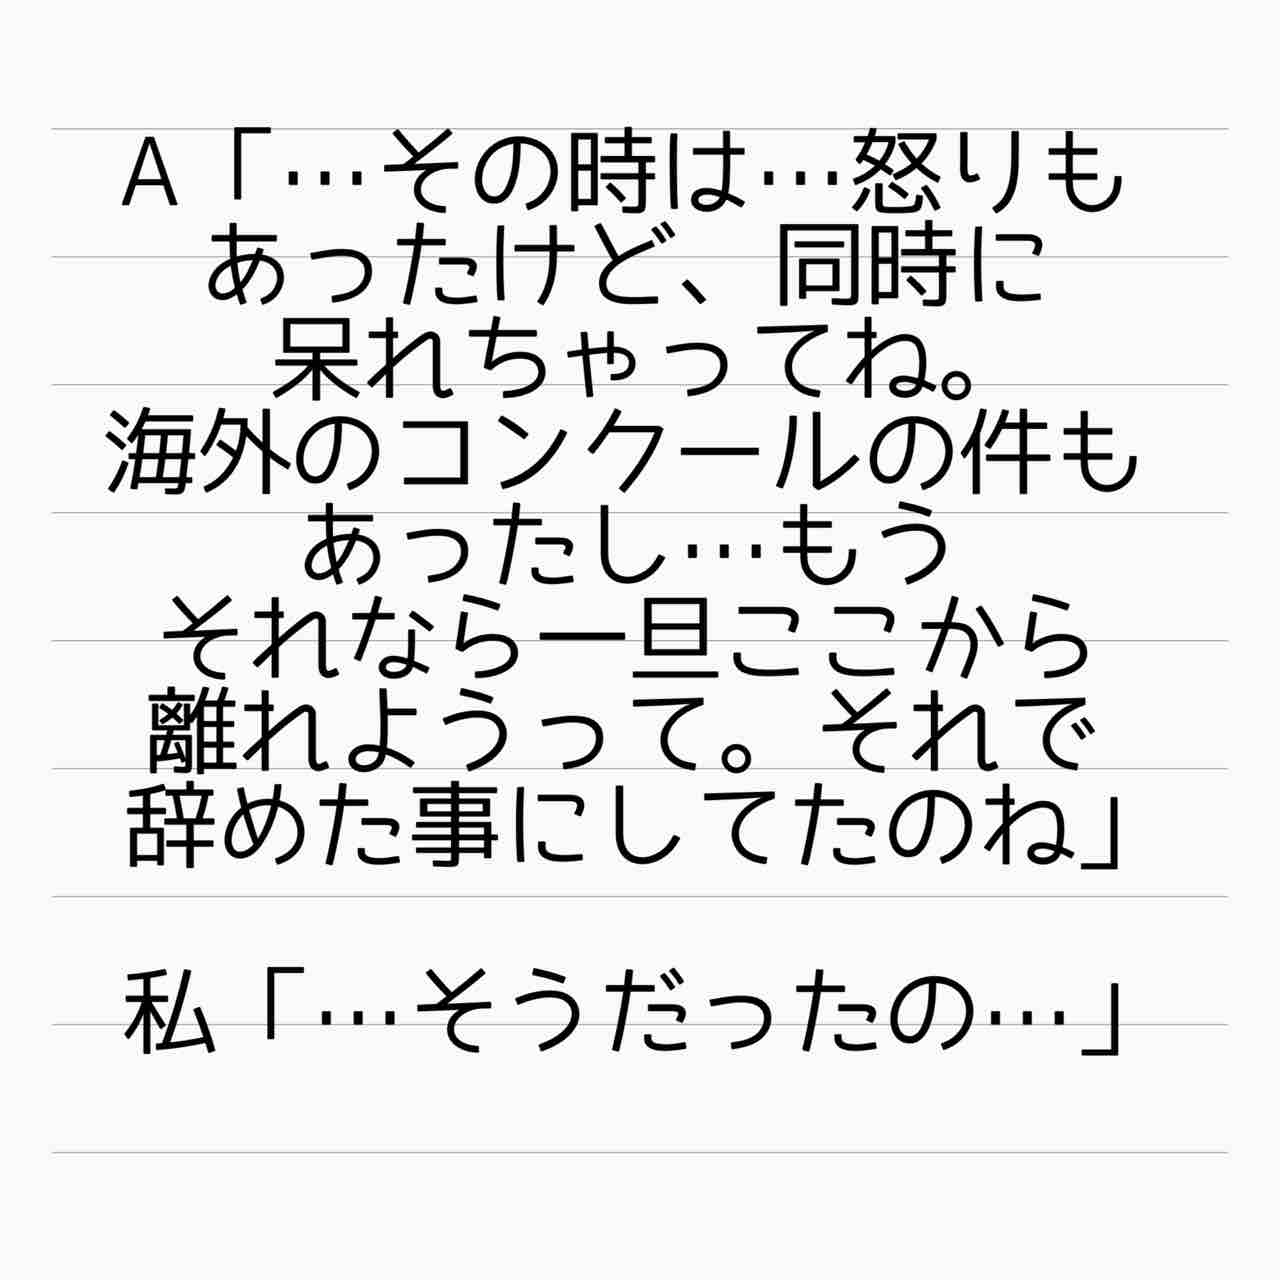 A「…その時は…怒りも
あったけど、同時に
呆れちゃってね。
海外のコンクールの件も
あったし…もう
それなら一旦ここから
離れようって。それで
辞めた事にしてたのね」
私「…そうだったの…」